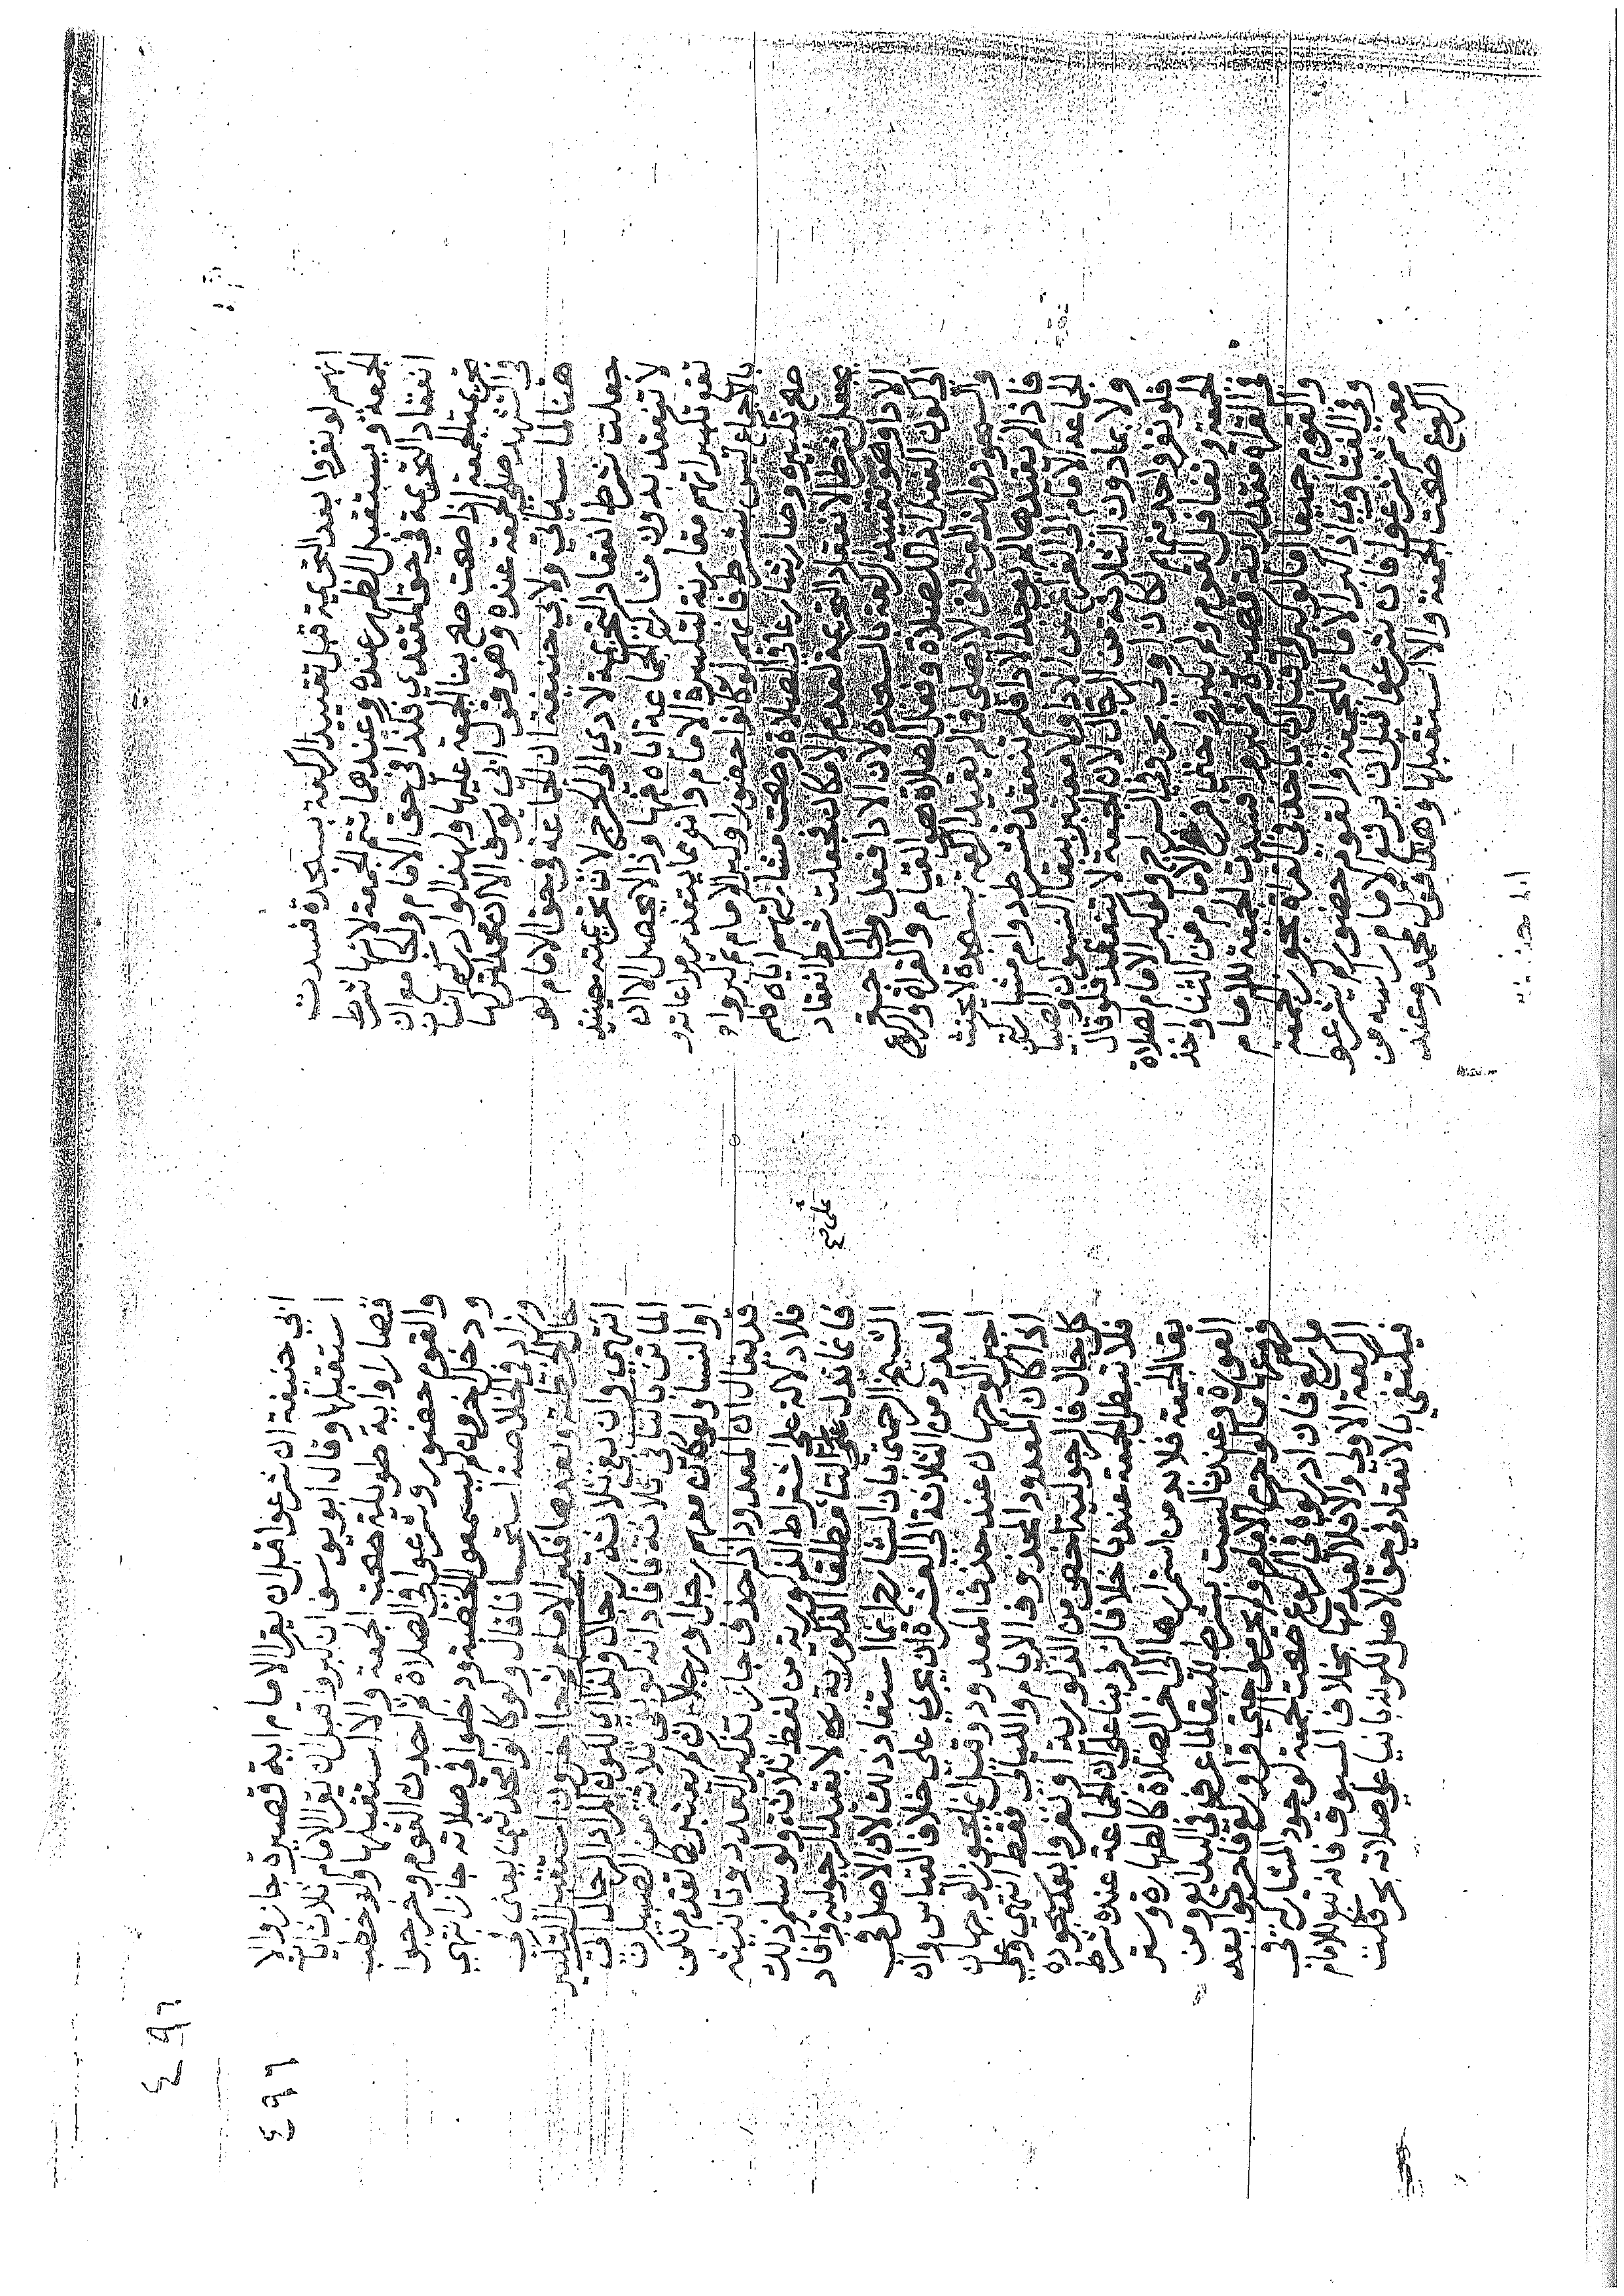 انهم لو نفروا بعد التحريمة قبل تقييد الركعة بسجدة فسدت
الجمعة ويستقبل الظهر عنده وعندهما تتم الجمعة لانها شرط
انعقاد التحريمة في حق المقتدي فكذا في حق الامام والجامع ان
تحريمة الجمعة اذا صحت صح بنا الجمعة عليها ولهذا لو ادركه انسان
في التشهد صلى الجمعة عنده وهو قول ابي يوسف الا ان محمدا تركها
هنا لما سياتي ولابي حنيفة ان الجماعة في حق الامام لو
جعلت شرط انعقاد التحريمة لادي الى الحرج لان تحريمته حينئذ
لا تنعقد بدون مشاركة الجماعة اياه فيها وذا لا يحصل الا ان
تقع تكبيراتهم مقارنة لتكبيرة الامام وانه مما يتعذر مراعاته و
بالاجماع ليس بشرط فانهم لو كانوا حضورا وكبر الامام ثم كبروا
صح تكبيره وصار شارعا في الصلاة وصحت مشاركتهم اياه فلم
يجعل شرط الانعقاد التحريمة لعدم الامكان فجعلت شرط انعقاد
الاداء وهو بتقييد الركعة بالسجدة لان الاداء فعل والحاجة
الى كون الفعل اداء للصلاة وفعل الصلاة هو القيام والقراة والركوع
والسجود ولهذا لو حلف لا يصلي فما لم يقيد الركعة بسجدة لا يحنث
فاذا لم يقيدها لم يوجد الاداء فلم تنعقد فشرط دوام مشاركة
الجماعة الامام الى الفراغ عن الاداء ولا معتبر ببقا النسوان والصبيان
ولا بما دون الثلاثة من الرجال لان الجمعة لا تنعقد بهم فلو قال
فلو نفر واحد منهم لكان اولى بحر وفي السراج ولو كبر الامام لصلاة
الجمعة ونفار القوم ولم يكبروا حتى فرغ الامام من الثنا واخذ
في القراة فقرا اية قصيرة ثم كبروا فسدت الجمعة للامام
والقوم جميعا فلو كبروا قبل ان ياخذ في القراة تجوز الجمعة
وفي الفتاوى اذا كبر الامام للجمعة والقوم حضور لم يشرعوا
معه ثم شرعوا فان شرعوا قبل ان يرفع الامام راسه من
الركوع صحت الجمعة والا استقبلها وهذا قول محمد وعند
ابي حنيفة ان شرعوا قبل ان يقرا الامام اية قصيرة جاز والا
استقبلها وقال ابو يوسف ان كبروا قبل ان يقرا الامام ثلاث ايات
قصار او اية طويلة صحت الجمعة والا استقبلها ولو خطب
والقوم حضور وشرعوا في الصلاة ثم احدث القوم وخرجوا
ودخل اخرون لم يسمعوا الخطبة ودخلوا في صلاته جاز انتهى
وزاد في الخلاصة استحسانا قال ولو كانوا محدثين يعني في
حالة الخطبة وبعدها فكبر الامام ثم جا اخرون استقبل التكبير
انتهى وان بقي ثلاثة رجال ولذا اي لكون المراد الرجال اتى
الماتن بالتا في ثلاثة فافاد انه لو بقي ثلاثة من الصبيان
او النسا ولو كان معهم رجل او رجلان لم يعتبر كما تقدم لكن
قد يقال ان المعدود اذا حذف جاز تذكير العدد وتانيثه
فلا دلالة على اشتراط الذكورية من لفظ ثلاثة ولو سلم ذلك
فانما تدل على التا مطلقا الذكورية لا بقيد الرجولية وافاد
الشيخ الرحمتي بان الشارح انما استفاد ذلك لان الاصل في
العدد من الثلاثة الى العشرة ان يجري على خلاف القياس وان
اجيز الوجهان عند حذف المعدود وقيل انما يجوز الوجهان
اذا كان المعدود المحذوف الايام والليالي فقط انتهى وعلى
كل حال فالرجولية اخص من الذكورية او نفروا بعد سجوده
فلا تبطل الجمعة عندنا خلافا لزفر بنا على ان الجماعة عنده شرط
بقا الجمعة فلا بد من استمرارها الى اخر الصلاة كالطهارة وستر
العورة وعندنا ليست بشرط للبقا لما عرف في البدايع ومن
فروعها ما لو احرم الامام ولم يحرموا حتى قرا وركع فاحرموا بعد
ما ركع فان ادركوه في الركوع صحت الجمعة لوجود المشاركة في
الركعة الاولى والا فلا لعدمها بخلاف المسبوق فانه تبع للامام
فيكتفي بالانعقاد في حق الاصل لكونه بانيا على صلاته بحر قلت
على
٤٩٦
٤٩٦